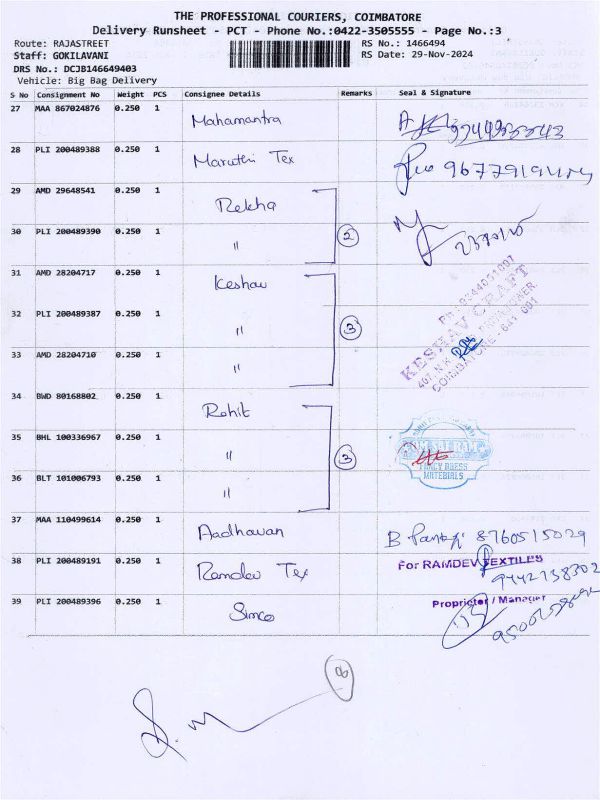 THE PROFESSIONAL COURIERS, COIMBATORE
Delivery Runsheet - PCT - Phone No.:0422-3505555 - Page No.:3
Route: RAJASTREET RS No.: 1466494
Staff: GOKILAVANI RS Date: 29-Nov-2024
DRS No.: DCJB146649403
Vehicle: Big Bag Delivery
S No Consignment No Weight PCS Consignee Details Remarks Seal & Signature
27 MAA 867024876 0.250 1 Mahamantra
28 PLI 200489388 0.250 1 Maruthi Tex
29 AMD 29648541 0.250 1 Rekha
30 PLI 200489390 0.250 1 " 2
31 AMD 28204717 0.250 1 Keshav
Ph : 9344051007
KESHAV CRAFT
COIMBATORE - 641 001
32 PLI 200489387 0.250 1 " 3
33 AMD 28204710 0.250 1 "
34 BWD 80168802 0.250 1 Rohit
35 BHL 100336967 0.250 1 " 3
OM SAI RAM
FANCY DRESS
MATERIALS
36 BLT 101006793 0.250 1 "
37 MAA 110499614 0.250 1 Aadhavan 8760515029
38 PLI 200489191 0.250 1 Ramdev Tex For RAMDEV TEXTILES
9442738302
Proprietor / Manager
39 PLI 200489396 0.250 1 Simco